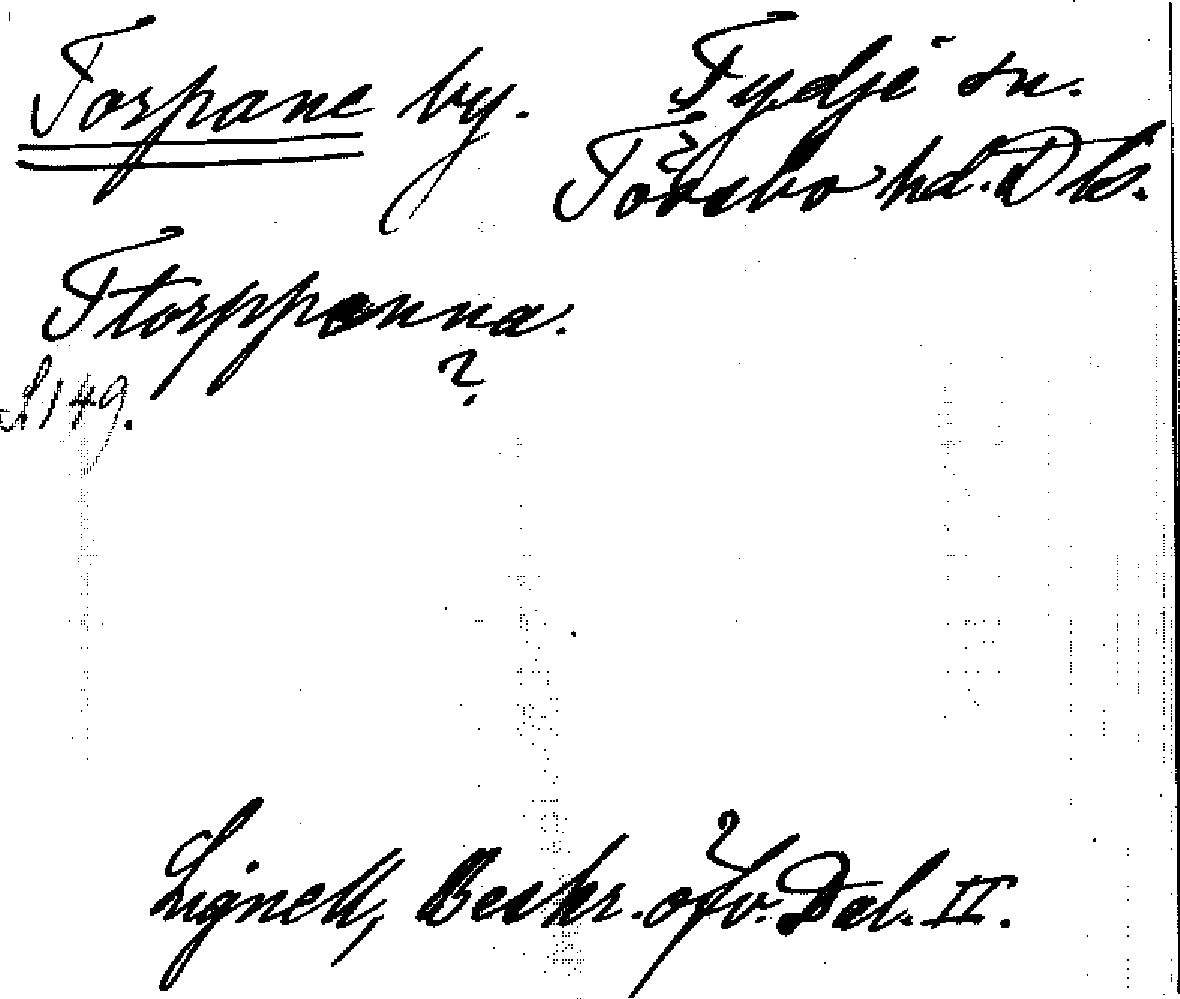 Torpane by. Tydje sn.
Tössbo hd. Dls.
Ttorppanna.
?
S 149.
Lignell, Beskr. öfv. Dal. II.